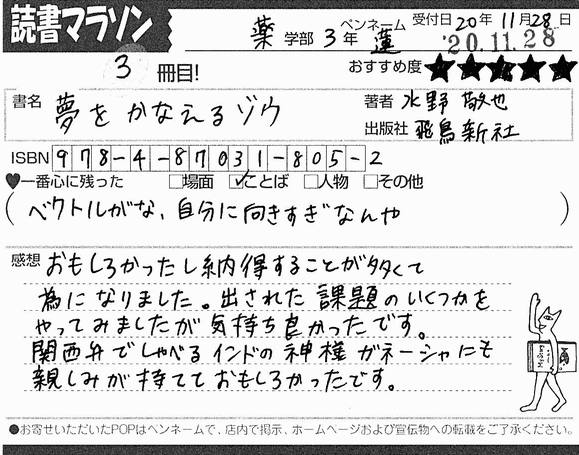 読書マラソン
薬学部 3年 ペンネーム 蓮 受付日 20年 11月 28日
'20.11.28
3冊目! おすすめ度 ★★★★★
書名 夢をかなえるゾウ 著者 水野敬也
出版社 飛鳥新社
ISBN 978-4-87031-805-2
♥一番心に残った □場面 ☑ことば □人物 □その他
(ベクトルがな、自分に向きすぎなんや)
感想 おもしろかったし納得することが多くて
為になりました。出された課題のいくつかを
やってみましたが気持ち良かったです。
関西弁でしゃべるインドの神様ガネーシャにも
親しみが持てておもしろかったです。
●お寄せいただいたPOPはペンネームで、店内で掲示、ホームページおよび宣伝物への転載をご了承ください。